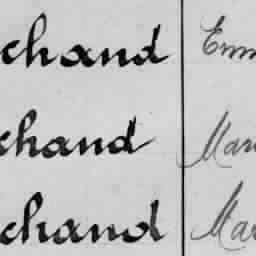 chand Emm
chand Mar
chand Mar